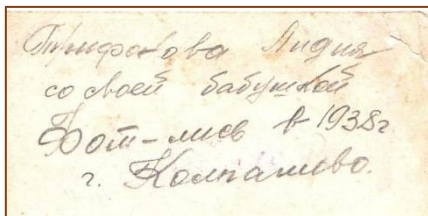 Трифонова Лидия
со своей бабушкой
Фот-лись в 1938г
г. Колпашево.